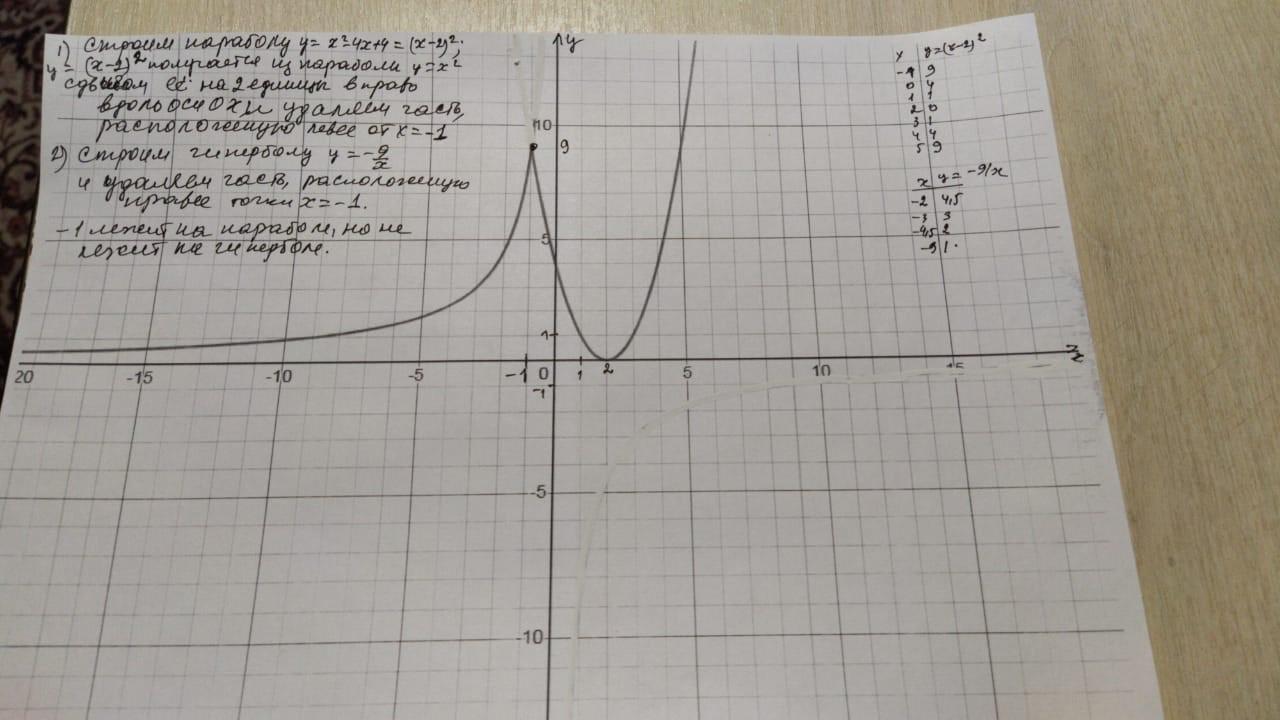 1) Строим параболу y = x²-4x+4 = (x-2)²;
y = (x-2)² получается из параболы y = x²
сдвигом её на 2 единицы вправо
вдоль оси OX, и удаляем часть,
расположенную левее от x = -1
2) Строим гиперболу y = -9/x
и удаляем часть, расположенную
правее точки x = -1.
-1 лежит на параболе, но не
лежит на гиперболе.
x y=(x-2)²
-1 9
0 4
1 1
2 0
3 1
4 4
5 9
x y = -9/x
-2 4,5
-3 3
-4,5 2
-9 1
y
10
9
5
1
20 -15 -10 -5 -1 0 1 2 5 10 15
-1
-5
-10